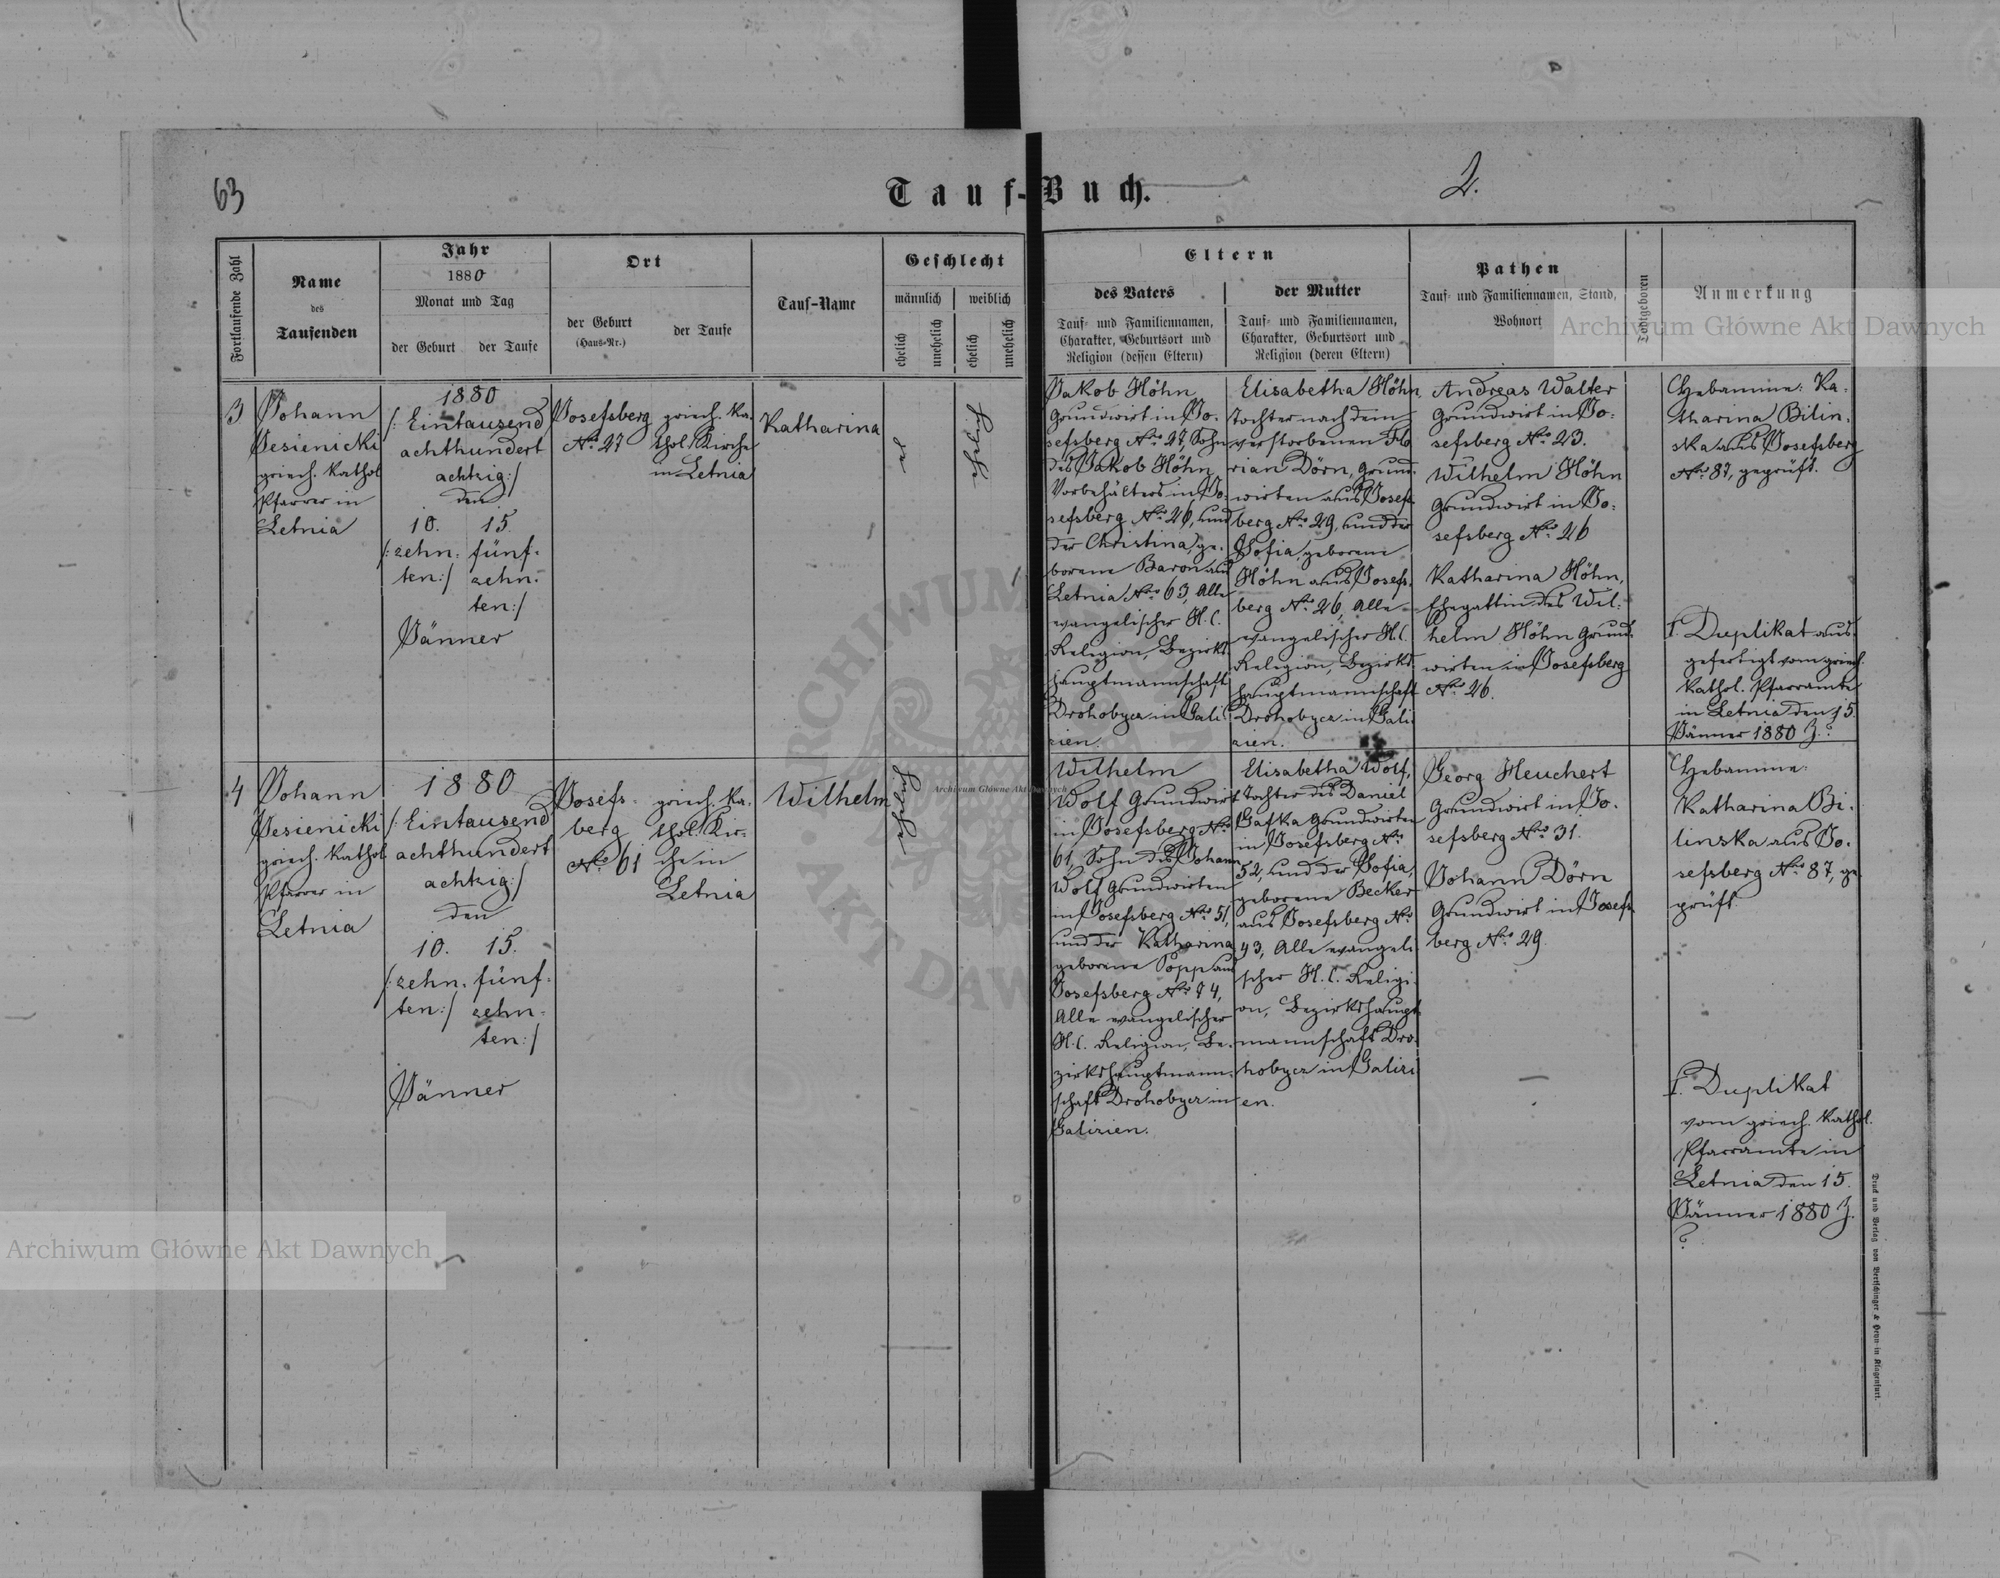 63
Tauf-Buch.
2.
Fortlaufende Zahl
Name
des
Taufenden
Jahr
1880
Monat und Tag
der Geburt
der Taufe
Ort
der Geburt
(Haus-Nr.)
der Taufe
Tauf-Name
Geschlecht
männlich
weiblich
ehelich
unehelich
ehelich
unehelich
Eltern
des Vaters
Tauf- und Familiennamen,
Charakter, Geburtsort und
Religion (dessen Eltern)
der Mutter
Tauf- und Familiennamen,
Charakter, Geburtsort und
Religion (deren Eltern)
Pathen
Tauf- und Familiennamen, Stand,
Wohnort
Todtgeboren
Anmerkung
3
Johann
Jesienicki
griech. kathol
Pfarrer in
Letnia
1880
/: Eintausend
achthundert
achtzig :/
den
10. 15.
/: zehn- fünf-
ten :/ zehn-
ten :/
Jänner
Josefsberg
No. 27
griech. ka-
thol. Kirche
in Letnia
Katharina
ehelich
Jakob Höhn
Grundwirt in Jo-
sefsberg No. 27, Sohn
des Jakob Höhn
Vorbehälters in Jo-
sefsberg No. 26, und
der Christina, ge-
borene Baron aus
Letnia No. 63, Alle
evangelischer H. C.
Religion, Bezirks-
hauptmannschaft
Drohobycz in Gali-
zien.
Elisabetha Höhn,
Tochter nach dem
verstorbenen Flo-
rian Dörn, Grund-
wirten aus Josefs-
berg No. 29, und der
Sofia, geborene
Höhn aus Josefs-
berg No. 26, Alle
evangelischer H. C.
Religion, Bezirks-
hauptmannschaft
Drohobycz in Gali-
zien.
Andreas Walter
Grundwirt in Jo-
sefsberg No. 23.
Wilhelm Höhn
Grundwirt in Jo-
sefsberg No. 26
Katharina Höhn,
Ehegattin des Wil-
helm Höhn Grund-
wirten in Josefsberg
No. 26.
Hebamme: Ka-
tharina Bilin-
ska aus Josefsberg
No. 87, geprüft.
1. Duplikat aus-
gefertigt vom griech.
kathol. Pfarramte
in Letnia den 15.
Jänner 1880 Z. ?
4
Johann
Jesienicki
griech. kathol
Pfarrer in
Letnia
1880
/: Eintausend
achthundert
achtzig :/
den
10. 15.
/: zehn- fünf-
ten :/ zehn-
ten :/
Jänner
Josefs-
berg
No. 61
griech. ka-
thol. Kir-
che in
Letnia
Wilhelm
ehelich
Wilhelm
Wolf Grundwirt
in Josefsberg No.
61, Sohn des Johann
Wolf Grundwirten
in Josefsberg No. 51,
und der Katharina
geborene Popp aus
Josefsberg No. 74,
Alle evangelischer
H. C. Religion, Be-
zirkshauptmann-
schaft Drohobycz in
Galizien.
Elisabetha Wolf,
Tochter des Daniel
Gafka Grundwirten
in Josefsberg No.
52, und der Sofia,
geborene Becker
aus Josefsberg No.
43, Alle evangeli-
scher H. C. Religi-
on, Bezirkshaupt-
mannschaft Dro-
hobycz in Galizi-
en.
Georg Heuchert
Grundwirt in Jo-
sefsberg No. 31.
Johann Dörn
Grundwirt in Josefs-
berg No. 29.
Hebamme:
Katharina Bi-
linska aus Jo-
sefsberg No. 87, ge-
prüft.
1. Duplikat
vom griech. kathol.
Pfarramte in
Letnia den 15.
Jänner 1880 Z.
?
Druck und Verlag von Bertschinger & Heyn in Klagenfurt.
Archiwum Główne Akt Dawnych
Archiwum Główne Akt Dawnych
Archiwum Główne Akt Dawnych
ARCHIWUM
AKT DAW